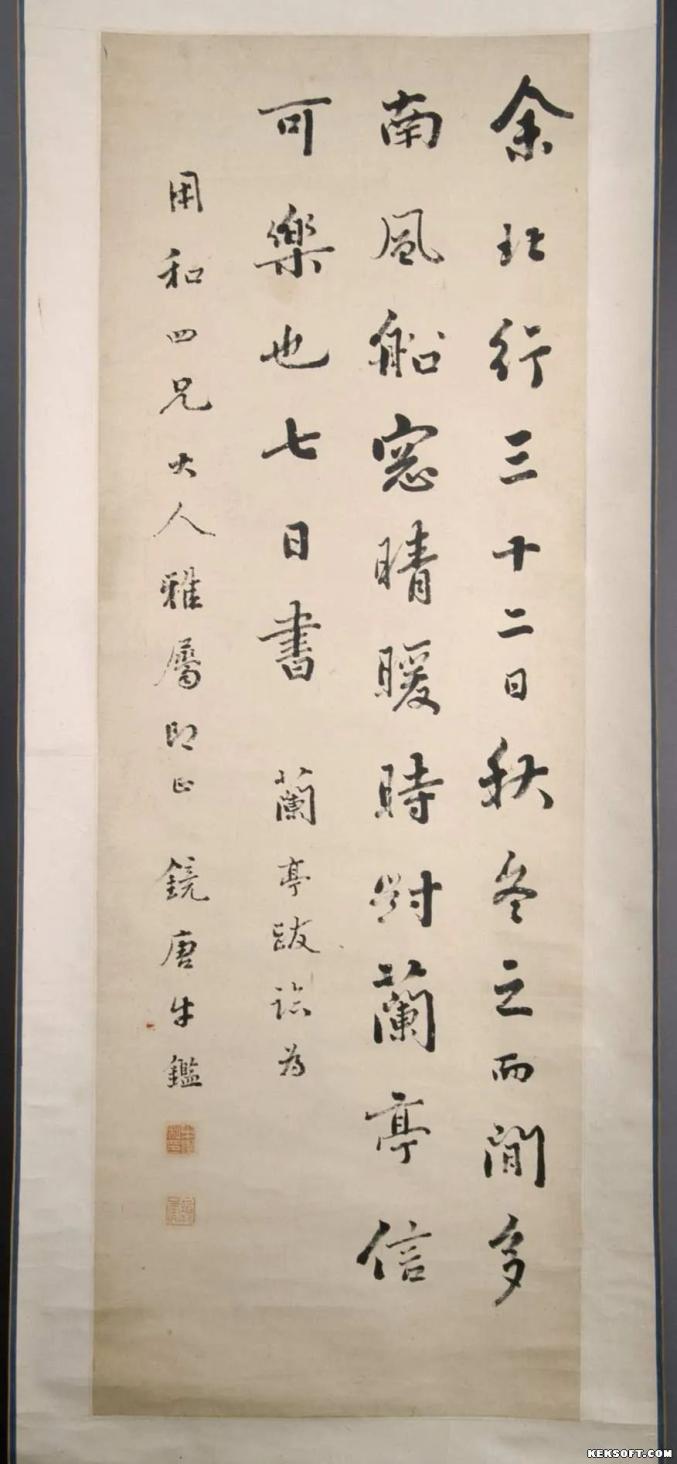 余北行三十二日秋冬之而間多
南風船窓晴暖時對蘭亭信
可樂也七日書 蘭亭跋臨為
用和四兄大人雅屬即正 鏡唐牛鑑
KEKSOFT.COM